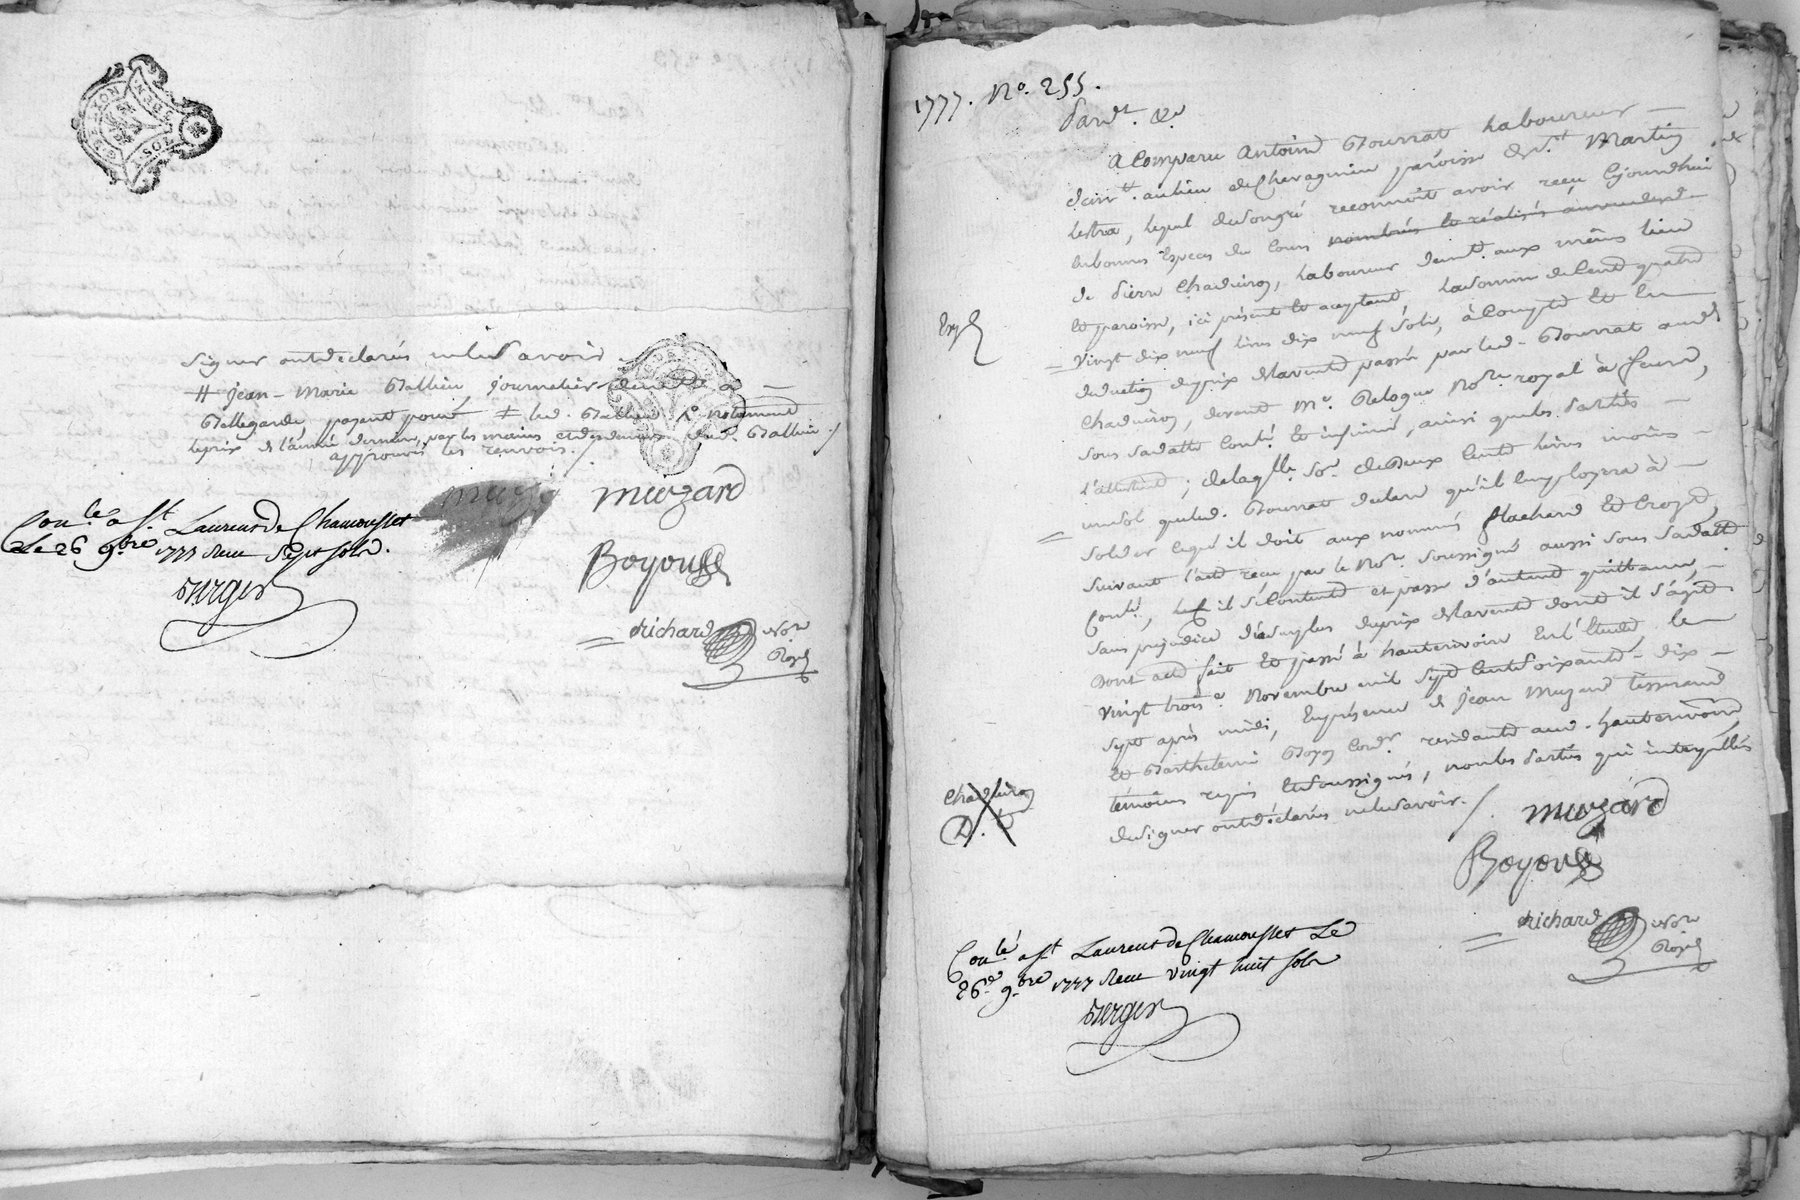 signer ont declarés ne le savoir
# Jean-Marie Vallieu journalier demt a
Bellegarde, payent pour # led. Vallieu notament
le prix de l'année derniere par les mains dud. Vallieu ./
approuvés les renvois. /
muzard
muzard
Conlé a St Laurens de Chamousset
Le 26 9bre 1777 Reçu Sept sols.
Verger
Boyou
Richard Nore
Royal
1777. No. 255.
Pardt. &a
a Comparu antoine Tournat Laboureur
demt. au lieu de Cheragnieu paroisse de St. Martin
Lestra, lequel de son gré reconnoit avoir reçu cejourdhui
en bonnes Especes du Cours nombrés et réalisés
de Pierre Chaduiron, Laboureur demt. aux mêmes lieu
et paroisse, ici présent et aceptant, la somme de Cent quatre
Vingt dix neuf livres dix neuf Sols, à Compte et En
deduction du prix de la vente passée par led. Tournat aud.
Chaduiron, devant Me. Relogue Nore. royal à feurs,
sous sa datte Conlé. et insinué, ainsi que les Parties
l'attestent; de laqlle. So. de Deux Cents livres moins
un sol que led. Tournat declare qu'il Employera à
solder ce qu'il doit aux nommés flachard et Croze,
suivant l'acte reçu par le Nore. soussigné aussi sous sa datte
Conlé, il se Contente et passe d'autant quittance,
sans prejudice du surplus du prix de la vente dont il s'agit
Dont acte fait et passé à hauterivoire En l'Etude, le
Vingt trois e. Novembre mil sept Cent soixante-dix-
sept après midi, En présence de Jean Muzard tisserand
et Barthelemi Boyou Cord. residants aud. hauterivoire
témoins requis et soussignés, non les Parties qui interpellés
de signer ont déclarés ne le savoir. /
Exp
Chaduiron
D.
muzard
Boyou
Richard Nore
Royal
Conlé a St Laurens de Chamousset Le
26e 9bre 1777 Reçu Vingt huit sols
Verger